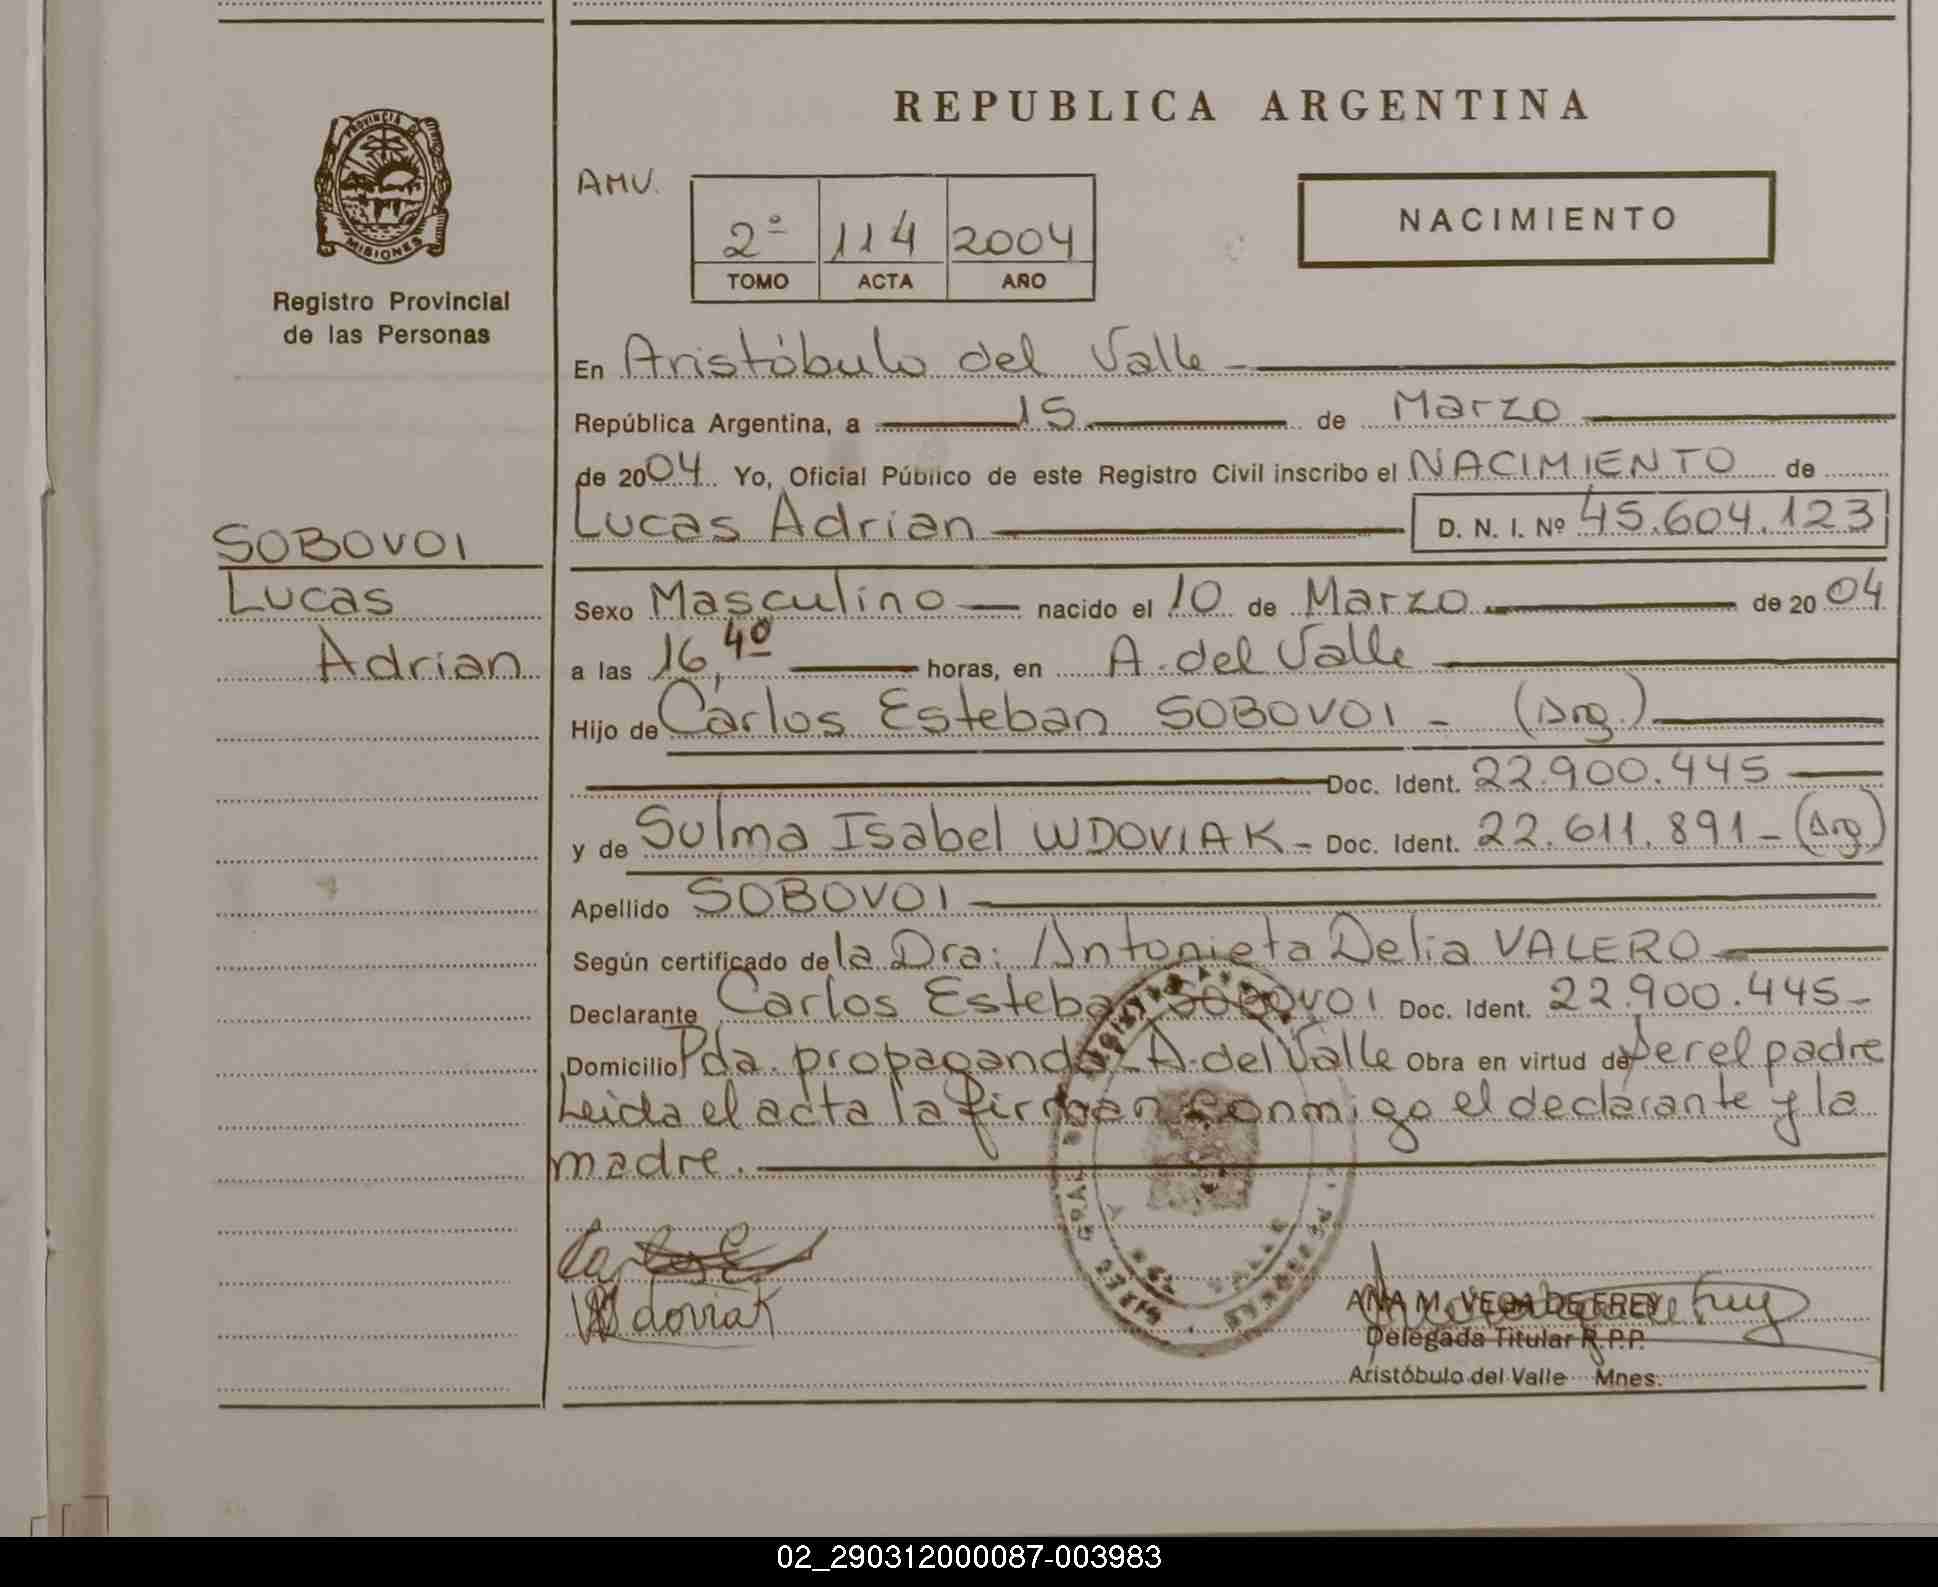 REPUBLICA ARGENTINA
PROVINCIA DE
MISIONES
Registro Provincial
de las Personas
AMV.
2º 114 2004
TOMO ACTA AÑO
NACIMIENTO
En Aristóbulo del Valle
República Argentina, a 15 de Marzo
de 2004 Yo, Oficial Público de este Registro Civil inscribo el NACIMIENTO de
Lucas Adrian D. N. I. Nº 45.604.123
SOBOVOI
Lucas
Adrian
Sexo Masculino nacido el 10 de Marzo de 2004
a las 16,40 horas, en A. del Valle
Hijo de Carlos Esteban SOBOVOI - (Arg.)
Doc. Ident. 22.900.445
y de Sulma Isabel WDOVIAK - Doc. Ident. 22.611.891 - (Arg)
Apellido SOBOVOI
Según certificado de la Dra: Antonieta Delia VALERO
Declarante Carlos Esteban SOBOVOI Doc. Ident. 22.900.445-
Domicilio Pda. propaganda - A. del Valle Obra en virtud de ser el padre
Leida el acta la firman conmigo el declarante y la
madre.
Wdoviak
ANA M. VEGA DE FREY
Delegada Titular R.P.P.
Aristóbulo del Valle Mnes.
02_290312000087-003983